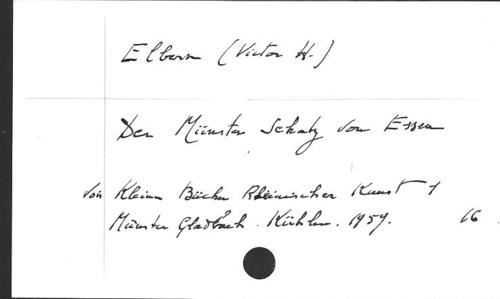 Elbern (Victor H.)
Der Münster Schatz von Essen
von Kleine Bücher Rheinischer Kunst 1
Münster Gladbach. Kühlen. 1959. 16